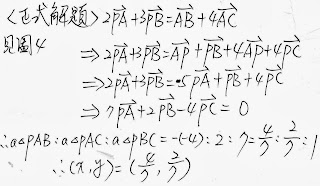 <正式解題> 2PA+3PB=AB+4AC
見圖4
⇒2PA+3PB=AP+PB+4AP+4PC
⇒2PA+3PB=-5PA+PB+4PC
⇒7PA+2PB-4PC=0
∴a△PAB:a△PAC:a△PBC=-(-4):2:7=4/7:2/7:1
∴(x,y)=(4/7,2/7)